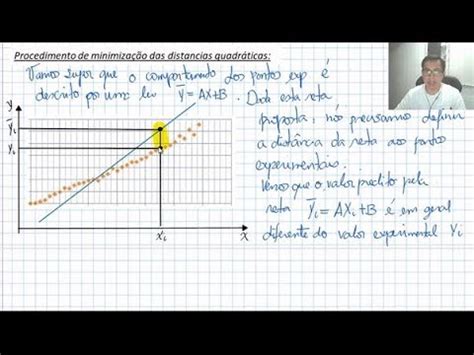 Procedimento de minimização das distancias quadráticas:
Vamos supor que o comportamento dos pontos exp é
descrito por uma lei ȳ = AX+B. Dada esta reta
proposta, nós precisamos definir
a distância da reta aos pontos
experimentais.
Vemos que o valor predito pela
reta ȳi = AXi + B é em geral
diferente do valor experimental Yi
Y
ȳi
Yi
Xi
X